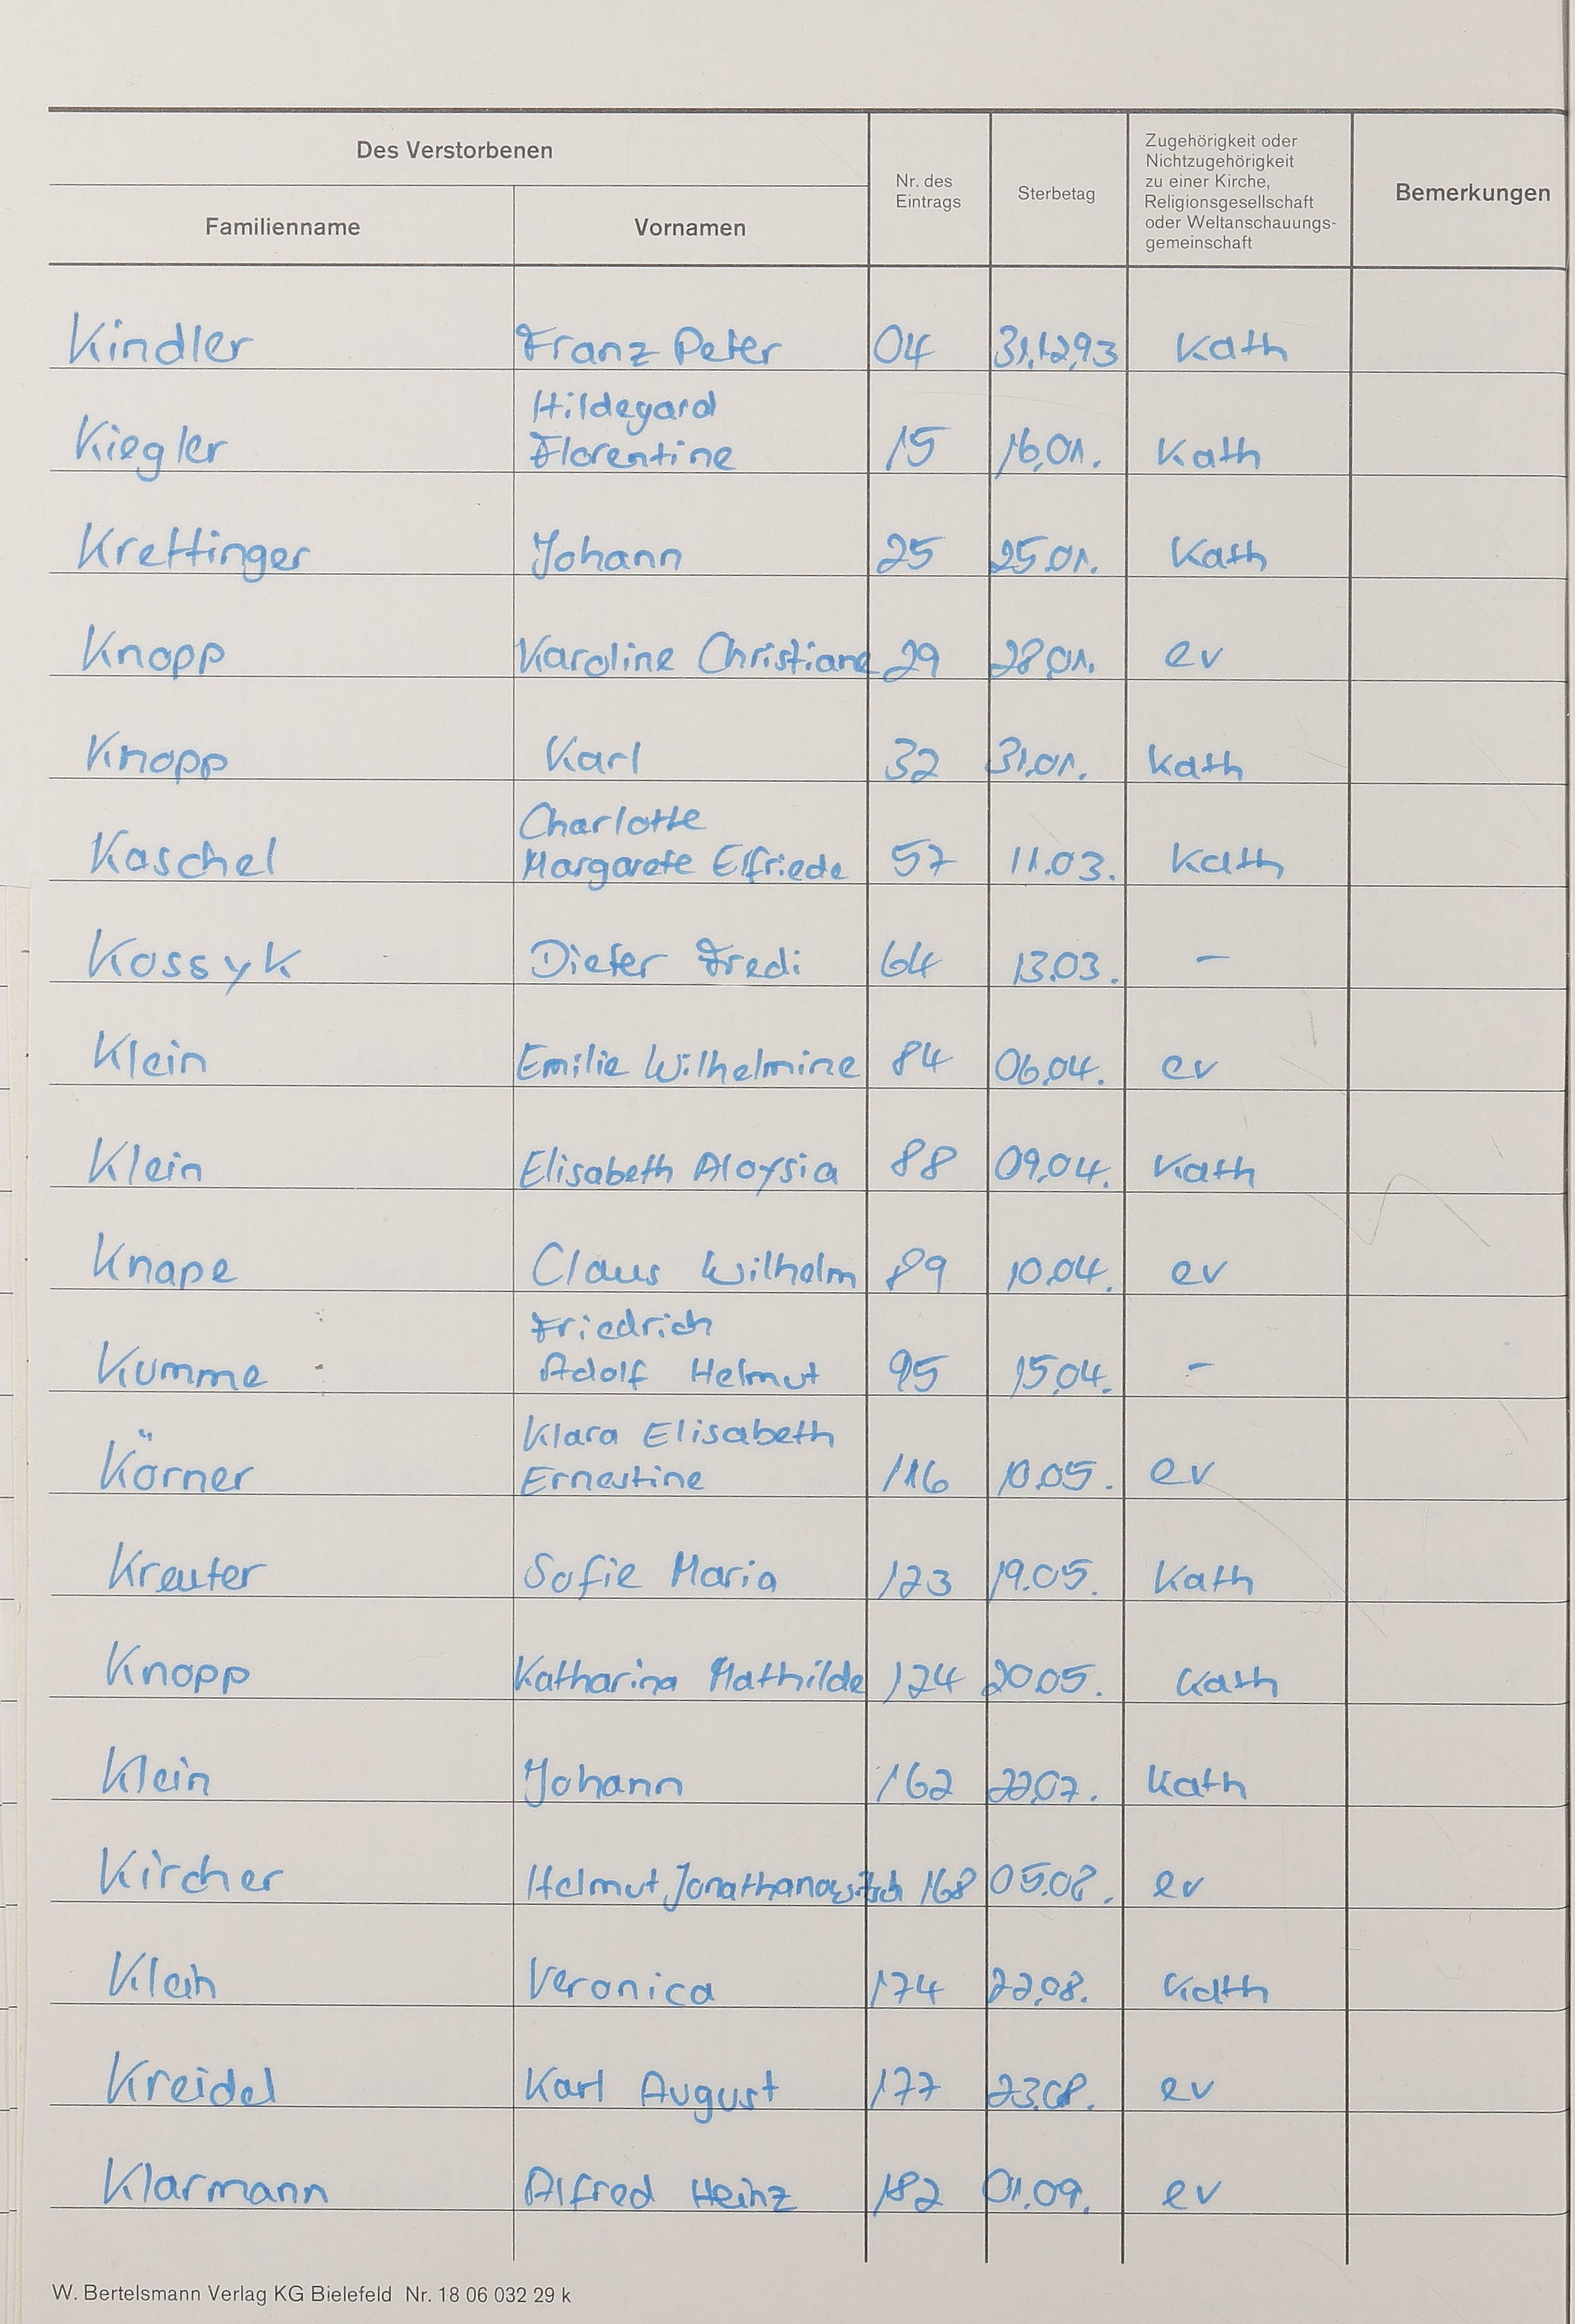 Des Verstorbenen
Familienname Vornamen Nr. des Eintrags Sterbetag Zugehörigkeit oder Nichtzugehörigkeit zu einer Kirche, Religionsgesellschaft oder Weltanschauungs-gemeinschaft Bemerkungen
Kindler Franz Peter 04 31.12.93 Kath
Hildegard
Kiegler Florentine 15 16.01. Kath
Krettinger Johann 25 25.01. Kath
Knopp Karoline Christiane 29 28.01. ev
Knopp Karl 32 31.01. Kath
Charlotte
Kaschel Margarete Elfriede 57 11.03. Kath
Kossyk Dieter Fredi 64 13.03. –
Klein Emilie Wilhelmine 84 06.04. ev
Klein Elisabeth Aloysia 88 09.04. Kath
Knape Claus Wilhelm 89 10.04. ev
Friedrich
Kumme Adolf Helmut 95 15.04. –
Klara Elisabeth
Körner Ernestine 116 10.05. ev
Kreuter Sofie Maria 123 19.05. Kath
Knopp Katharina Mathilde 124 20.05. Kath
Klein Johann 162 22.07. Kath
Kircher Helmut Jonathanowitsch 168 05.08. ev
Klein Veronica 174 22.08. Kath
Kreidel Karl August 177 23.08. ev
Klarmann Alfred Heinz 182 01.09. ev
W. Bertelsmann Verlag KG Bielefeld Nr. 18 06 032 29 k